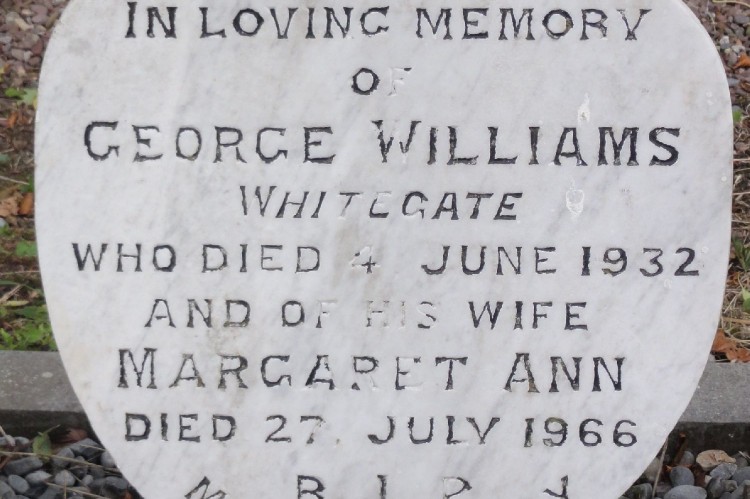 IN LOVING MEMORY
OF
GEORGE WILLIAMS
WHITEGATE
WHO DIED 4 JUNE 1932
AND OF HIS WIFE
MARGARET ANN
DIED 27. JULY 1966
R.I.P.